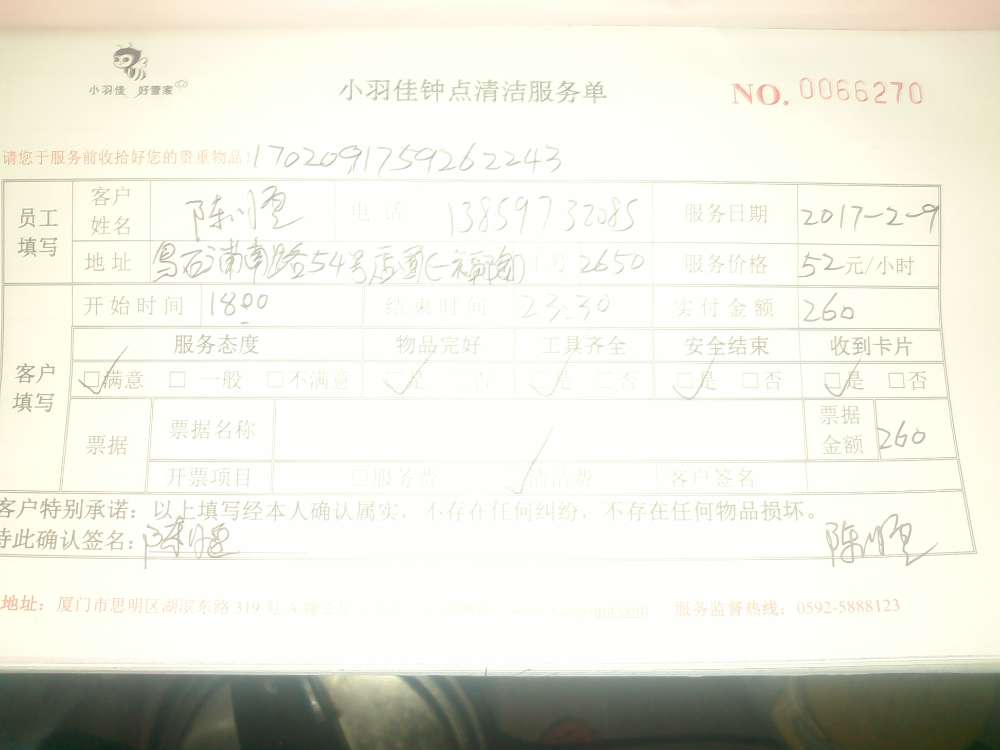 小羽佳 好管家
小羽佳钟点清洁服务单
NO. 0066270
请您于服务前收拾好您的贵重物品! 1702091759262243
员工填写 客户姓名 陈 电话 13859732085 服务日期 2017-2-9
地址 南路54号店 工号 2650 服务价格 52元/小时
客户填写 开始时间 18:00 结束时间 23:30 实付金额 260
服务态度 物品完好 工具齐全 安全结束 收到卡片
☑满意 □一般 □不满意 ☑是 □否 ☑是 □否 ☑是 □否 ☑是 □否
票据 票据名称 票据金额 260
开票项目 □服务费 ☑清洁费 客户签名
客户特别承诺：以上填写经本人确认属实，不存在任何纠纷，不存在任何物品损坏。
特此确认签名: 陈 陈
地址：厦门市思明区湖滨东路319号A 服务监督热线：0592-5888123